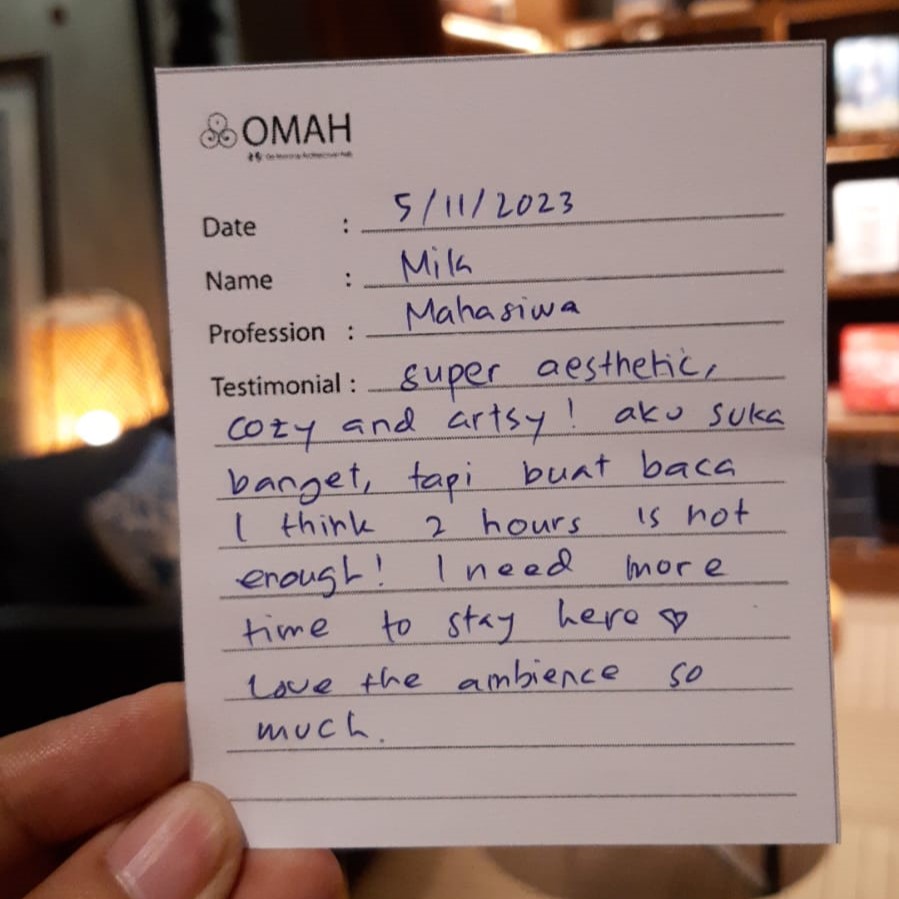 OMAH
Date : 5/11/2023
Name : Mila
Profession : Mahasiwa
Testimonial : super aesthetic,
cozy and artsy! aku suka
banget, tapi buat baca
I think 2 hours is not
enough! I need more
time to stay here ♡
Love the ambience so
much.